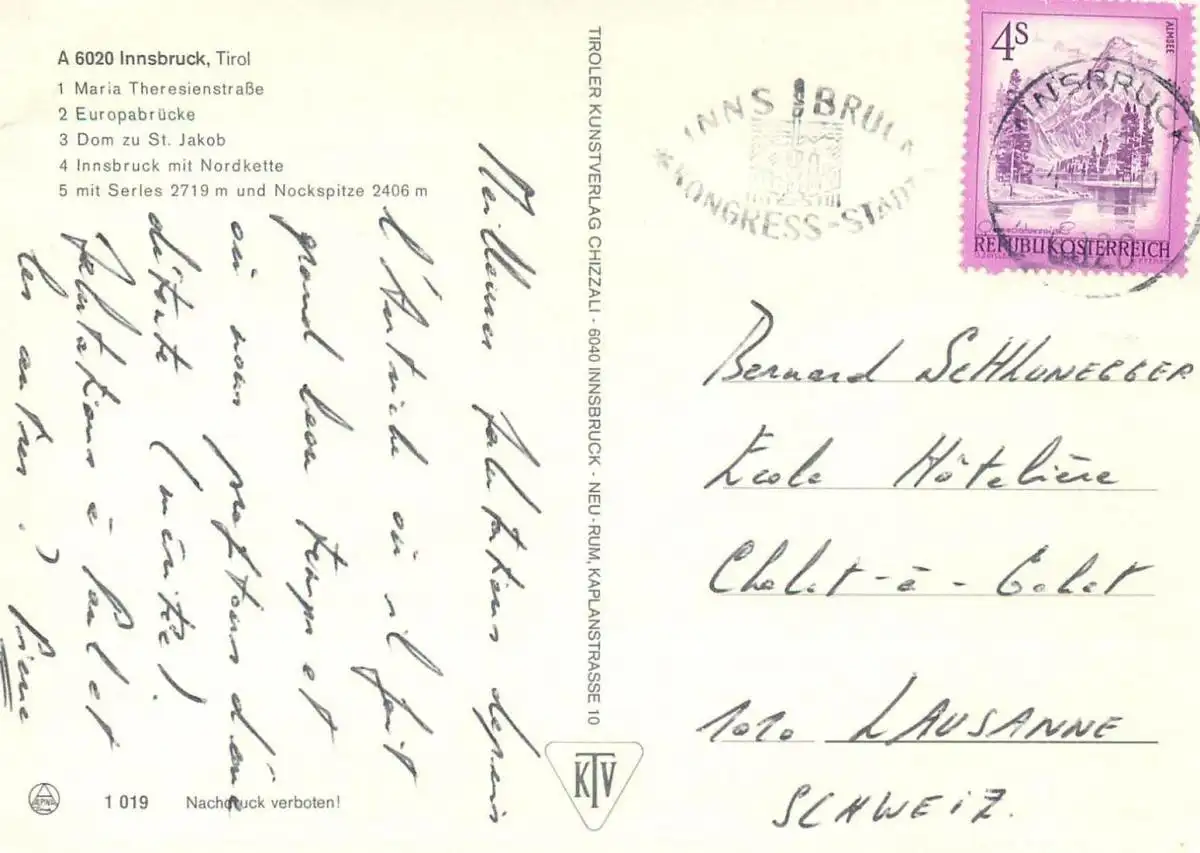 A 6020 Innsbruck, Tirol
1 Maria Theresienstraße
2 Europabrücke
3 Dom zu St. Jakob
4 Innsbruck mit Nordkette
5 mit Serles 2719 m und Nockspitze 2406 m
Meilleures salutations depuis
l'Autriche où il fait
grand beau temps et
où nous profitons d'une
détente (méritée)
Salutations à Paul et
les autres.) Pierre
1 019 Nachdruck verboten!
TIROLER KUNSTVERLAG CHIZZALI · 6040 INNSBRUCK - NEU-RUM, KAPLANSTRASSE 10
KTV
INNSBRUCK
KONGRESS-STADT
4S
ALMSEE
REPUBLIK ÖSTERREICH
INNSBRUCK
6020
Bernard SCHLUNEGGER
Ecole Hôtelière
Chalet-à-Gobet
1010 LAUSANNE
SCHWEIZ.